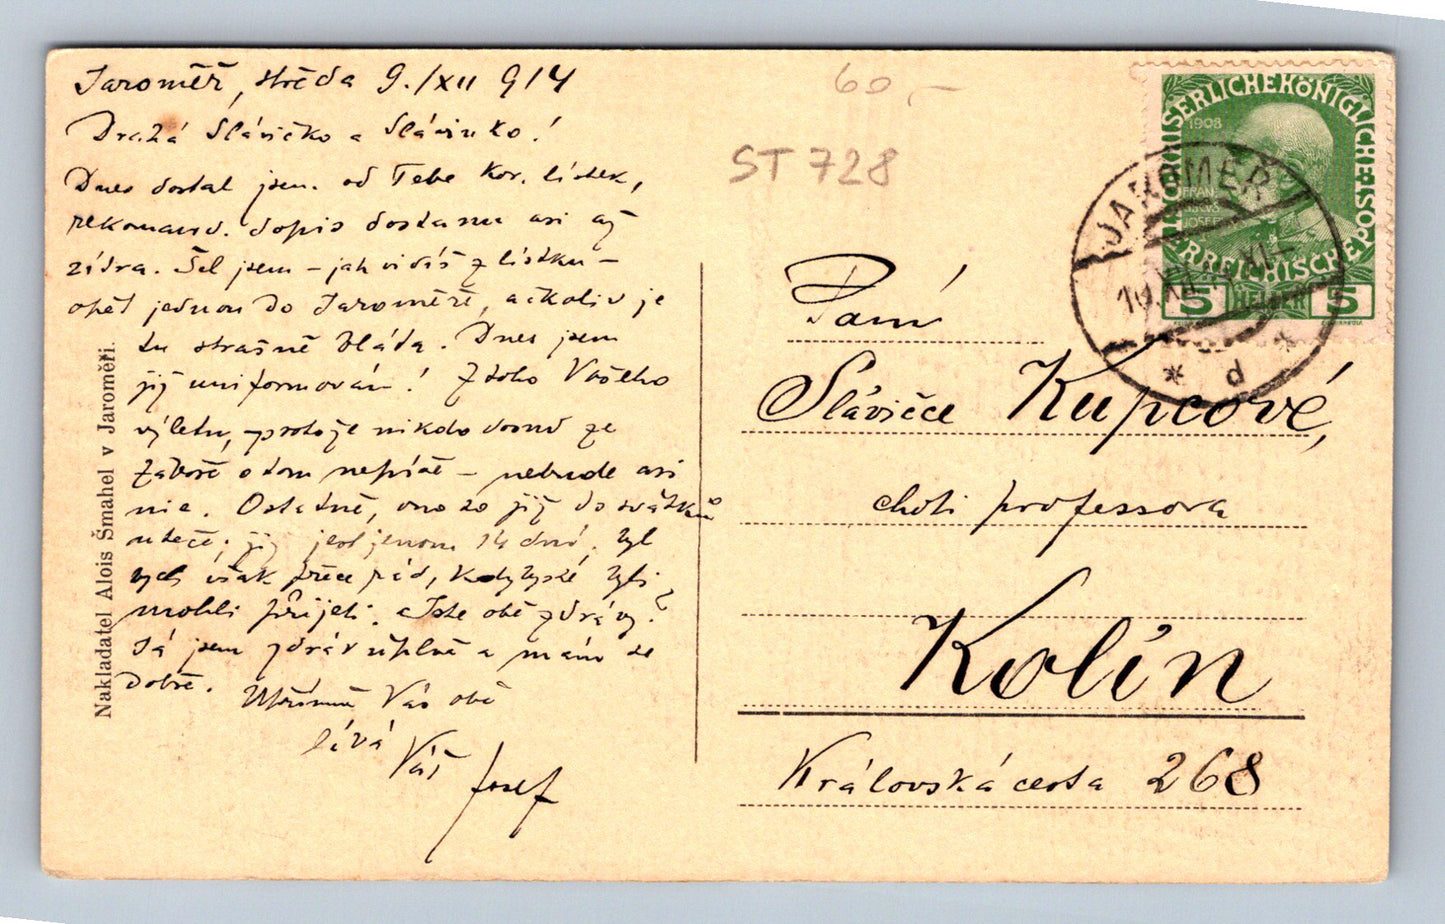 Jaroměř, středa 9./XII 914
Drahá Slávičko a Slávinko!
Dnes dostal jsem od Tebe kor. lístek,
rekomand. dopis dostanu asi až
zítra. Šel jsem – jak vidíš z lístku –
opět jednou do Jaroměře, ačkoliv je
tu strašně bláta. Dnes jsem
již uniformován! Z toho Vašeho
výletu, protože nikdo dosud ze
Záboře o tom nepíše – nebude asi
nic. Ostatně, ono to již do svátků
uteče; již jest jenom 14 dní. Byl
bych však přece rád, kdybyste byli
mohli přijeti. Jste obě zdrávy?
Já jsem zdráv úplně a mám se
dobře. Vás obě
líbá
Váš
Josef
Nakladatel Alois Šmahel v Jaroměři.
60,–
ST 728
KAISERLICHE KÖNIGLICHE ÖSTERREICHISCHE POST
1908
FRANZ JOSEF
5 HELLER 5
JAROMĚŘ
10.XII
* d *
Paní
Slávičce Kupcové,
choti professora
Kolín
Královská cesta 268